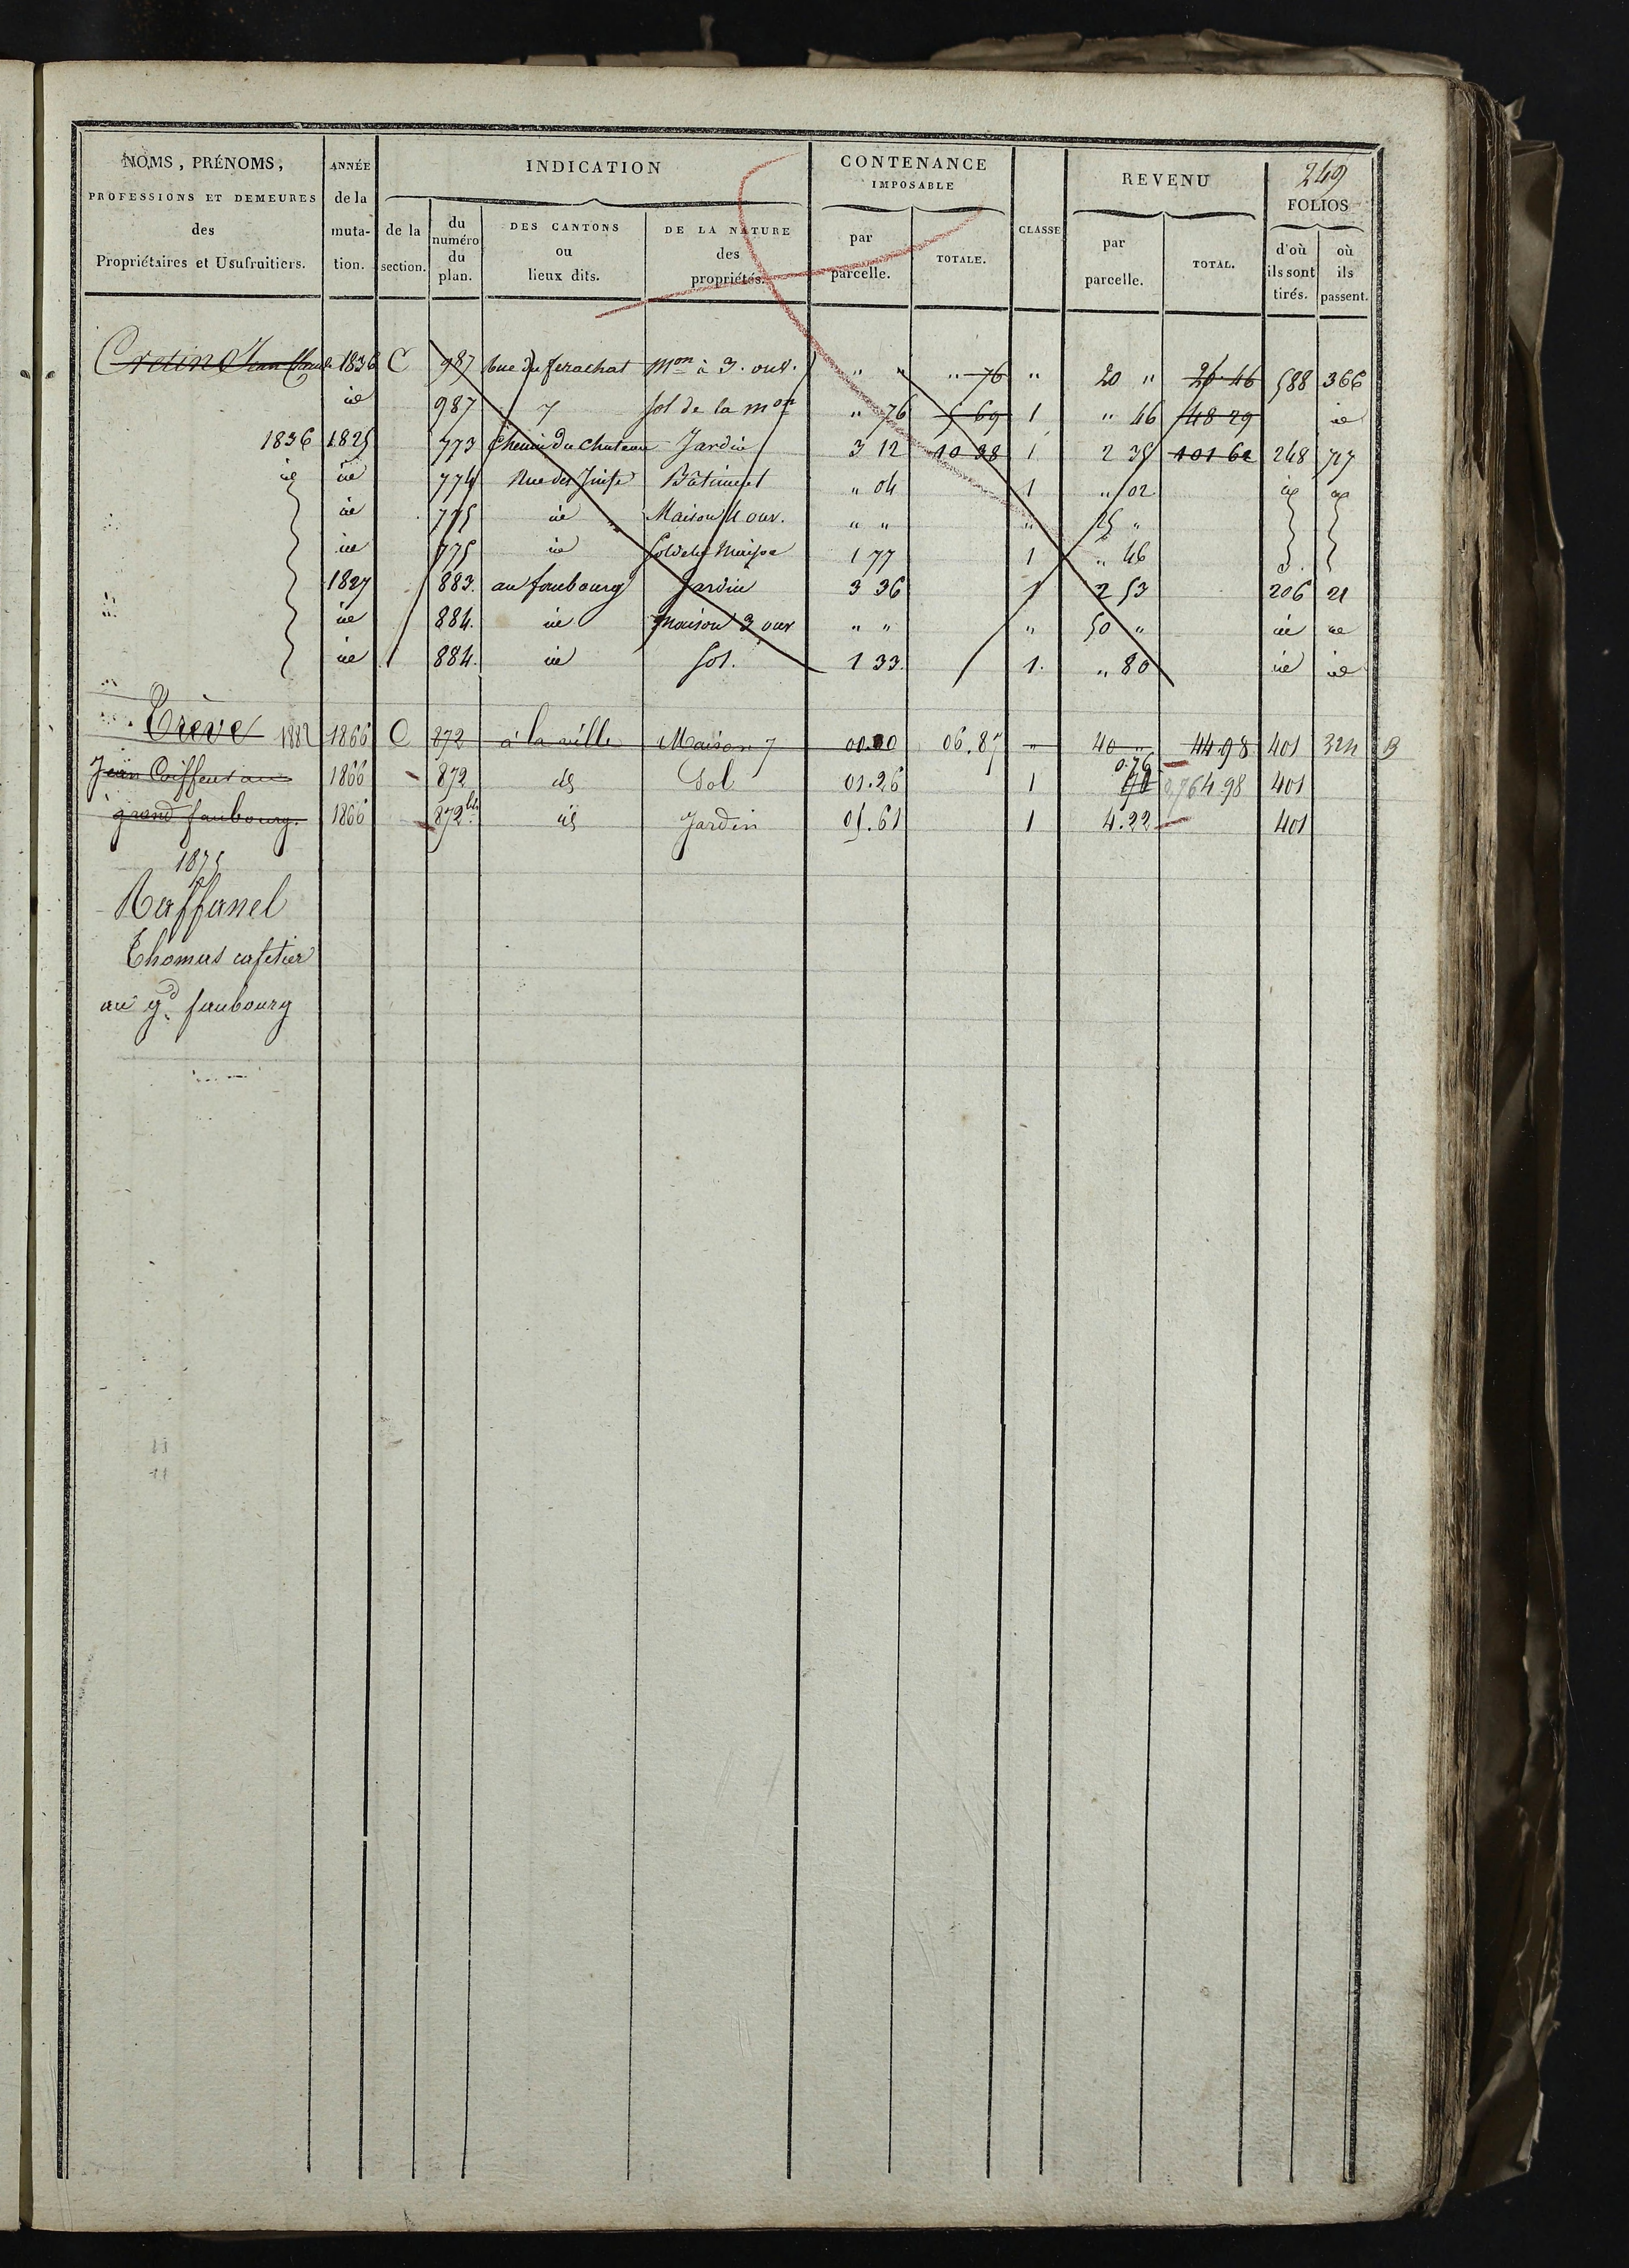 249
NOMS, PRÉNOMS, PROFESSIONS ET DEMEURES des Propriétaires et Usufruitiers.
ANNÉE de la muta-tion.
INDICATION
de la section.
du numéro du plan.
DES CANTONS ou lieux dits.
DE LA NATURE des propriétés.
CONTENANCE IMPOSABLE
par parcelle.
TOTALE.
CLASSE
REVENU
par parcelle.
TOTAL.
FOLIOS
d'où ils sont tirés.
où ils passent.
Cretin Jean Claude 1836 C 987 Rue du ferachat Mon à 3. ouv. " " " 76 " 20 " 20 46 588 366
id 987 7 Sol de la mon " 76 5 69 1 " 46 48 29 id
1836 1825 773 Chemin du Chateau Jardin 3 12 10 38 1 2 35 101 62 248 717
id id 774 Rue des Juifs Bâtiment " 04 1 " 02 id id
id 775 id Maison 4 ouv. " " " 25 "
id 775 id Sol de la Maison 1 77 1 " 46
1827 883. au faubourg Jardin 3 36 1 2 53 206 21
id 884. id Maison 3 ouv " " " 50 " id id
id 884. id Sol. 1 33. 1. " 80 id id
Trève 1882 1866 C 872 à la ville Maison 7 00.00 06.87 " 40 " 44.98 401 324 B
Jean Coiffeur au 1866 872 id Sol 01.26 1 0.76 4.98 401
grand faubourg. 1866 872 bis id Jardin 05.61 1 4.22 401
1875
Raffanel
Thomas cafetier
au gd faubourg